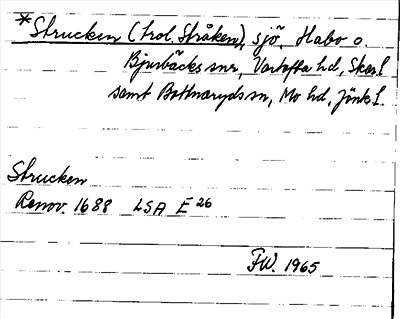 *Strucken (trol. Stråken), sjö, Habo o.
Bjurbäcks snr, Vartofta hd, Skar.l
samt Bottnaryds sn, Mo hd, Jönk.l.
Strucken
Renov. 1688 LSA E 26
F.W. 1965